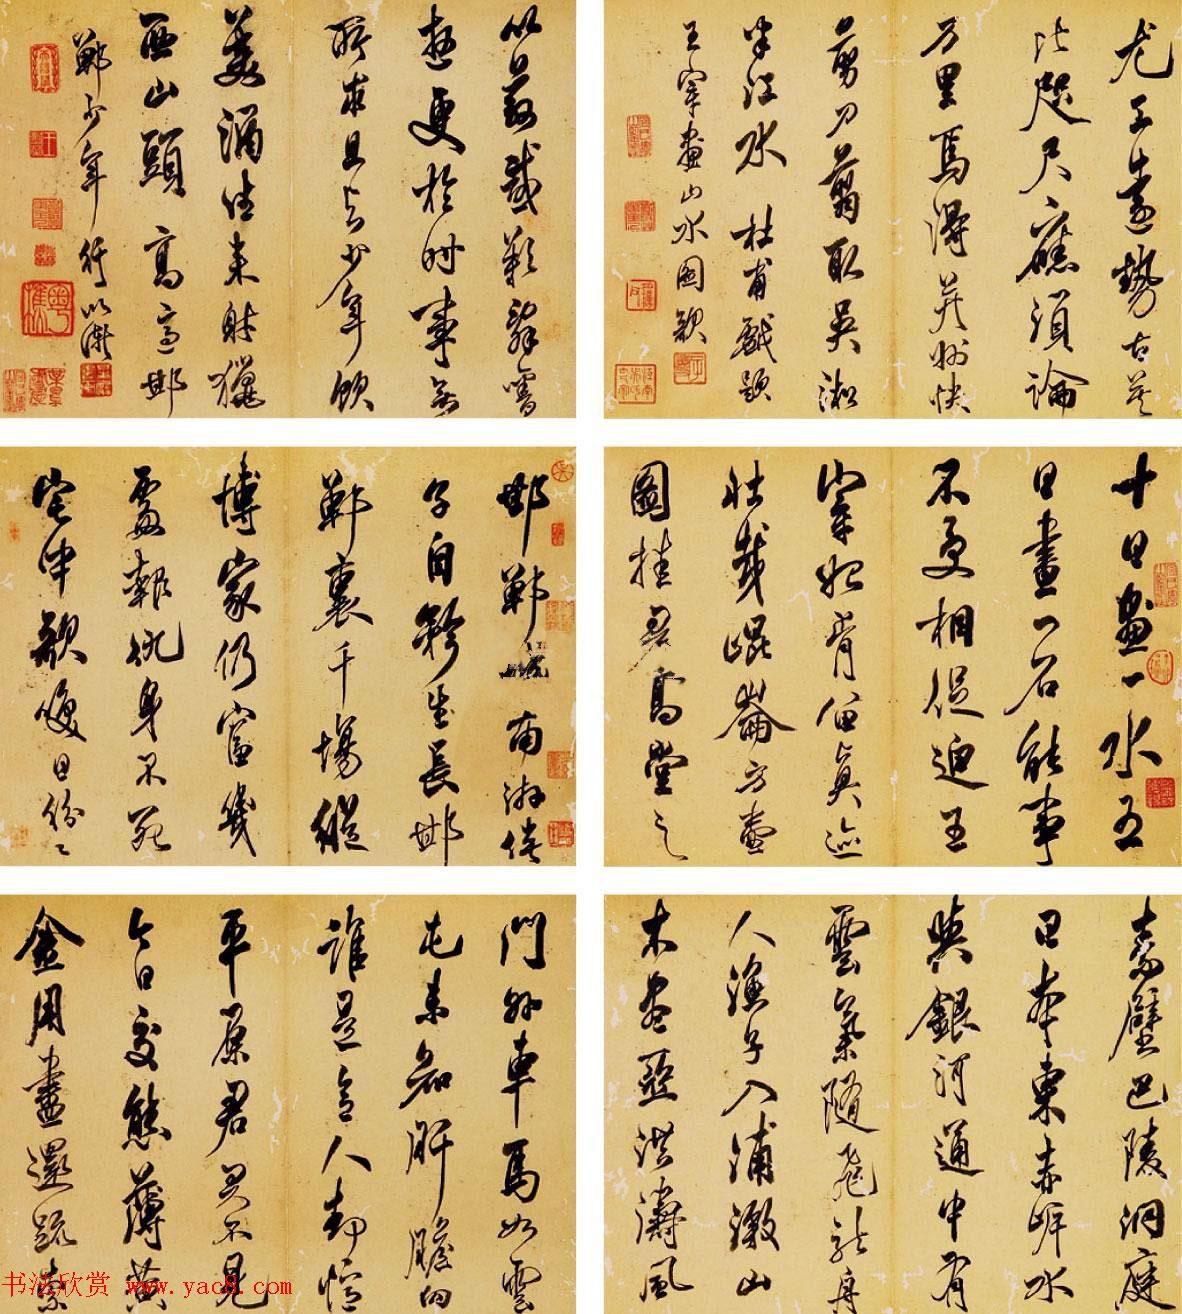 十日畫一水五
日畫一石能事
不受相促迫王
宰始肯留真迹
壯哉崐崙方壺
圖挂君高堂之
素壁巴陵洞庭
日本東赤岸水
與銀河通中有
雲氣隨飛龍舟
人漁子入浦漵山
木盡亞洪濤風
尤工遠勢古莫
比咫尺應須論
万里焉得并州快
剪刀剪取吳淞
半江水 杜甫戲題
王宰畫山水圖歌
邯鄲城南游俠
子自矜生長邯
鄲裏千場縱
博家仍富幾
處報仇身不死
宅中歌咲日紛〻
門外車馬如雲
屯未知肝膽向
誰是令人却憶
平原君君不見
今日交態薄黃
金用盡還疏索
以茲感歎辭舊
遊更於時事無
所求且与少年飲
美酒往來射獵
西山頭 高適邯
鄲少年行
书法欣赏 www.yac8.com